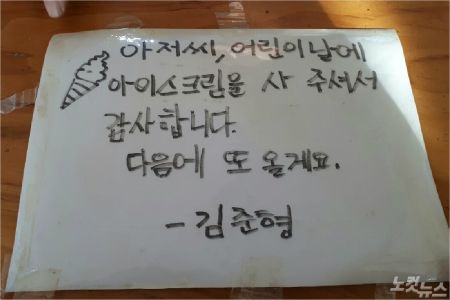 아저씨, 어린이날에
아이스크림을 사 주셔서
감사합니다.
다음에 또 올게요.
- 김준형
노컷뉴스